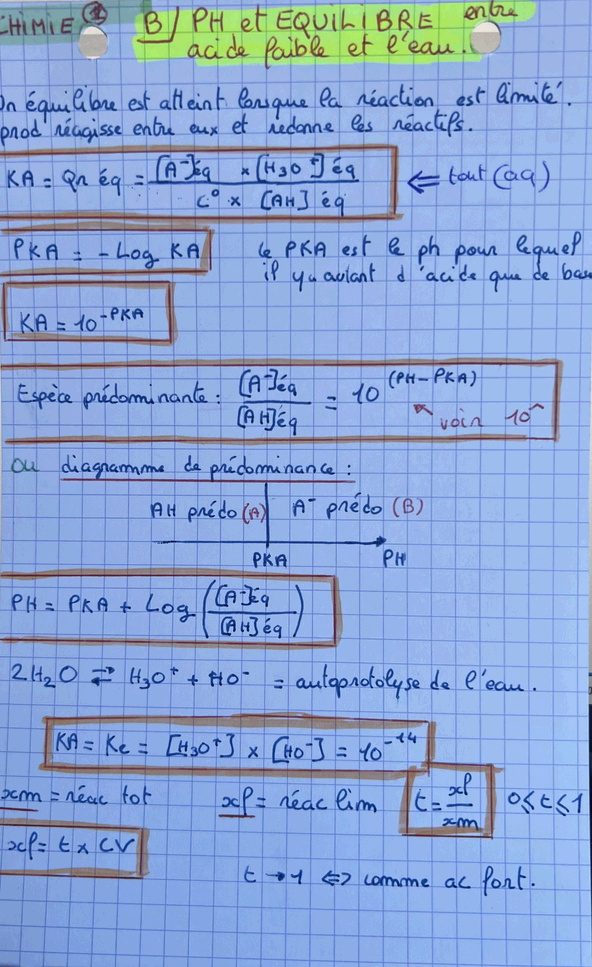 CHIMIE ① B) PH et EQUILIBRE entre
acide faible et l'eau.
Un équilibre est atteint lorsque la réaction est limité.
prod réagisse entre eux et redonne les réactifs.
KA = Qr éq = [A⁻]éq × [H₃O⁺]éq / C° × [AH] éq ⇐ tout (aq)
PKA = - Log KA le PKA est le ph pour lequel
il y a autant d'acide que de bas
KA = 10^-PKA
Espèce prédominante : [A⁻]éq / [AH]éq = 10^(PH-PKA)
↖ voir 10^
OU diagramme de prédominance :
AH prédo (A) A⁻ prédo (B)
PKA PH
PH = PKA + Log ([A⁻]éq / [AH]éq)
2H₂O ⇄ H₃O⁺ + HO⁻ = autoprotolyse de l'eau.
KA = Ke = [H₃O⁺] × [HO⁻] = 10⁻¹⁴
xm = réac tot xf = réac lim t = xf / xm 0 ≤ t ≤ 1
xf = t × CV
t → 1 ⇔ comme ac fort.